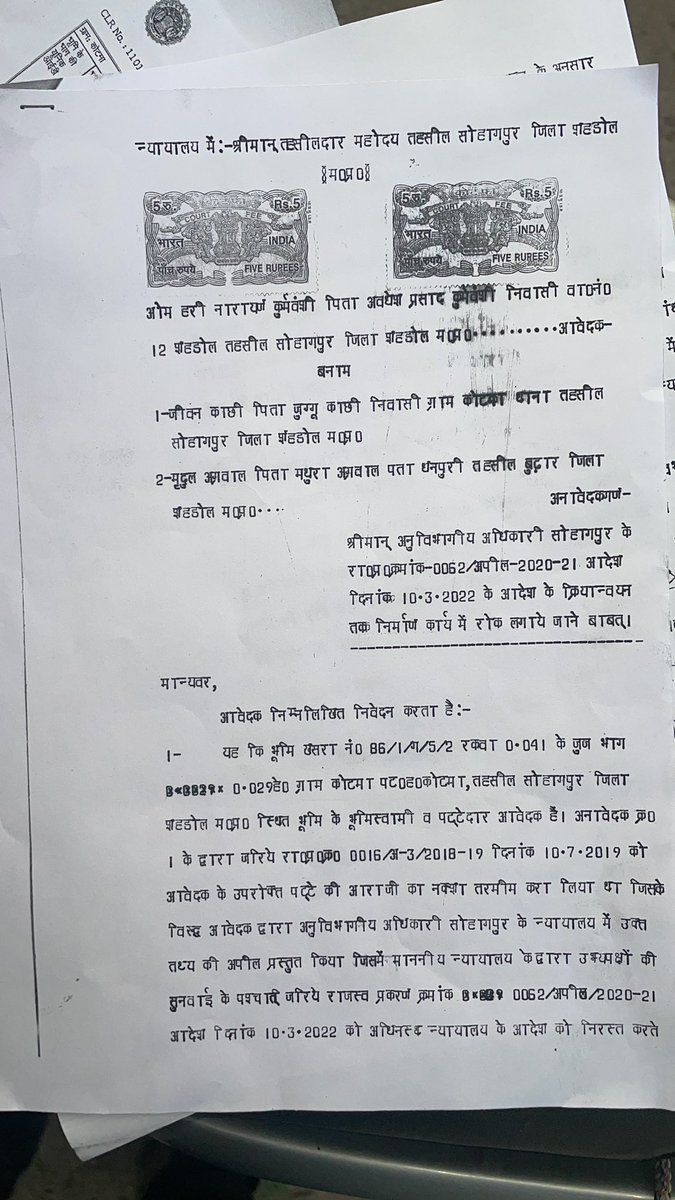 CLR No.: 1101
ग्राम: कोटमा
भूमि के
भाग की
यूनिक
आईडी
के अनुसार
न्यायालय में:-श्रीमान् तहसीलदार महोदय तहसील सोहागपुर जिला शहडोल
§म0प्र0§
5 रु. Rs.5
COURT FEE
भारत INDIA
पाँच रुपये FIVE RUPEES
5 रु. Rs.5
COURT FEE
भारत INDIA
पाँच रुपये FIVE RUPEES
ओम हरी नारायण कुर्मवंशी पिता अवधेश प्रसाद कुर्मवंशी निवासी वा0नं0
12 शहडोल तहसील सोहागपुर जिला शहडोल म0प्र0..........आवेदक-
बनाम
1-जीवन काछी पिता जुग्गू काछी निवासी ग्राम कोटमा थाना तहसील
सोहागपुर जिला शहडोल म0प्र0
2-मृदुल अग्रवाल पिता मथुरा अग्रवाल पता धनपुरी तहसील बुढ़ार जिला
शहडोल म0प्र0.... अनावेदकगण-
श्रीमान् अनुविभागीय अधिकारी सोहागपुर के
रा0प्र0क्रमांक-0062/अपील-2020-21 आदेश
दिनांक 10.3.2022 के आदेश के क्रियान्वयन
तक निर्माण कार्य में रोक लगाये जाने बाबत्।
मान्यवर,
आवेदक निम्नलिखित निवेदन करता है:-
1- यह कि भूमि खसरा नं0 86/1/ग/5/2 रकवा 0.041 के जुज भाग
0.029हे0 ग्राम कोटमा प0ह0कोटमा,तहसील सोहागपुर जिला
शहडोल म0प्र0 स्थित भूमि के भूमिस्वामी व पट्टेदार आवेदक है। अनावेदक क्र0
1 के द्वारा जरिये रा0प्र0क्र0 0016/अ-3/2018-19 दिनांक 10.7.2019 को
आवेदक के उपरोक्त पट्टे की आराजी का नक्शा तरमीम करा लिया था जिसके
विरूद्ध आवेदक द्वारा अनुविभागीय अधिकारी सोहागपुर के न्यायालय में उक्त
तथ्य की अपील प्रस्तुत किया जिसमें माननीय न्यायालय केद्वारा उभयपक्षों की
सुनवाई के पश्चात् जरिये राजस्व प्रकरण क्रमांक 0062/अपील/2020-21
आदेश दिनांक 10.3.2022 को अधिनस्थ न्यायालय के आदेश को निरस्त करते